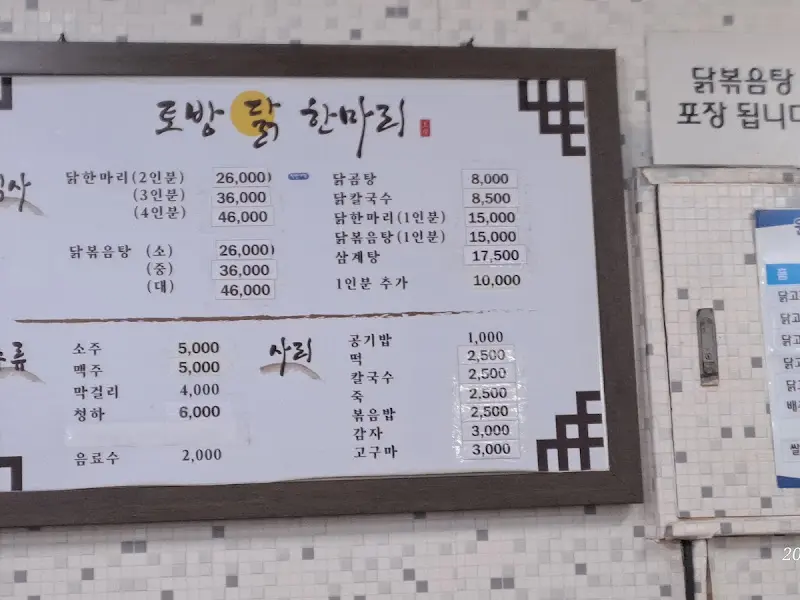 토방 닭 한마리
닭한마리(2인분) 26,000)
(3인분) 36,000
(4인분) 46,000
닭볶음탕 (소) 26,000)
(중) 36,000
(대) 46,000
닭곰탕 8,000
닭칼국수 8,500
닭한마리(1인분) 15,000
닭볶음탕(1인분) 15,000
삼계탕 17,500
1인분 추가 10,000
류
소주 5,000
맥주 5,000
막걸리 4,000
청하 6,000
음료수 2,000
사리
공기밥 1,000
떡 2,500
칼국수 2,500
죽 2,500
볶음밥 2,500
감자 3,000
고구마 3,000
닭볶음탕
포장 됩니다
닭고
닭고
닭고
닭고
닭고
배
쌀
20